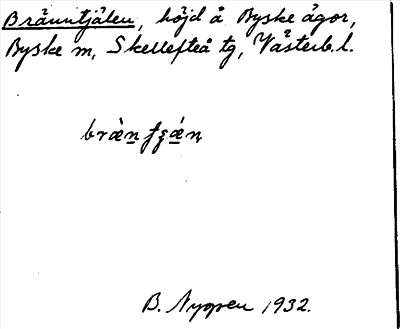 Bränntjälen, höjd å Byske ägor,
Byske sn, Skellefteå tg, Västerb. l.
B. Nygren 1932.